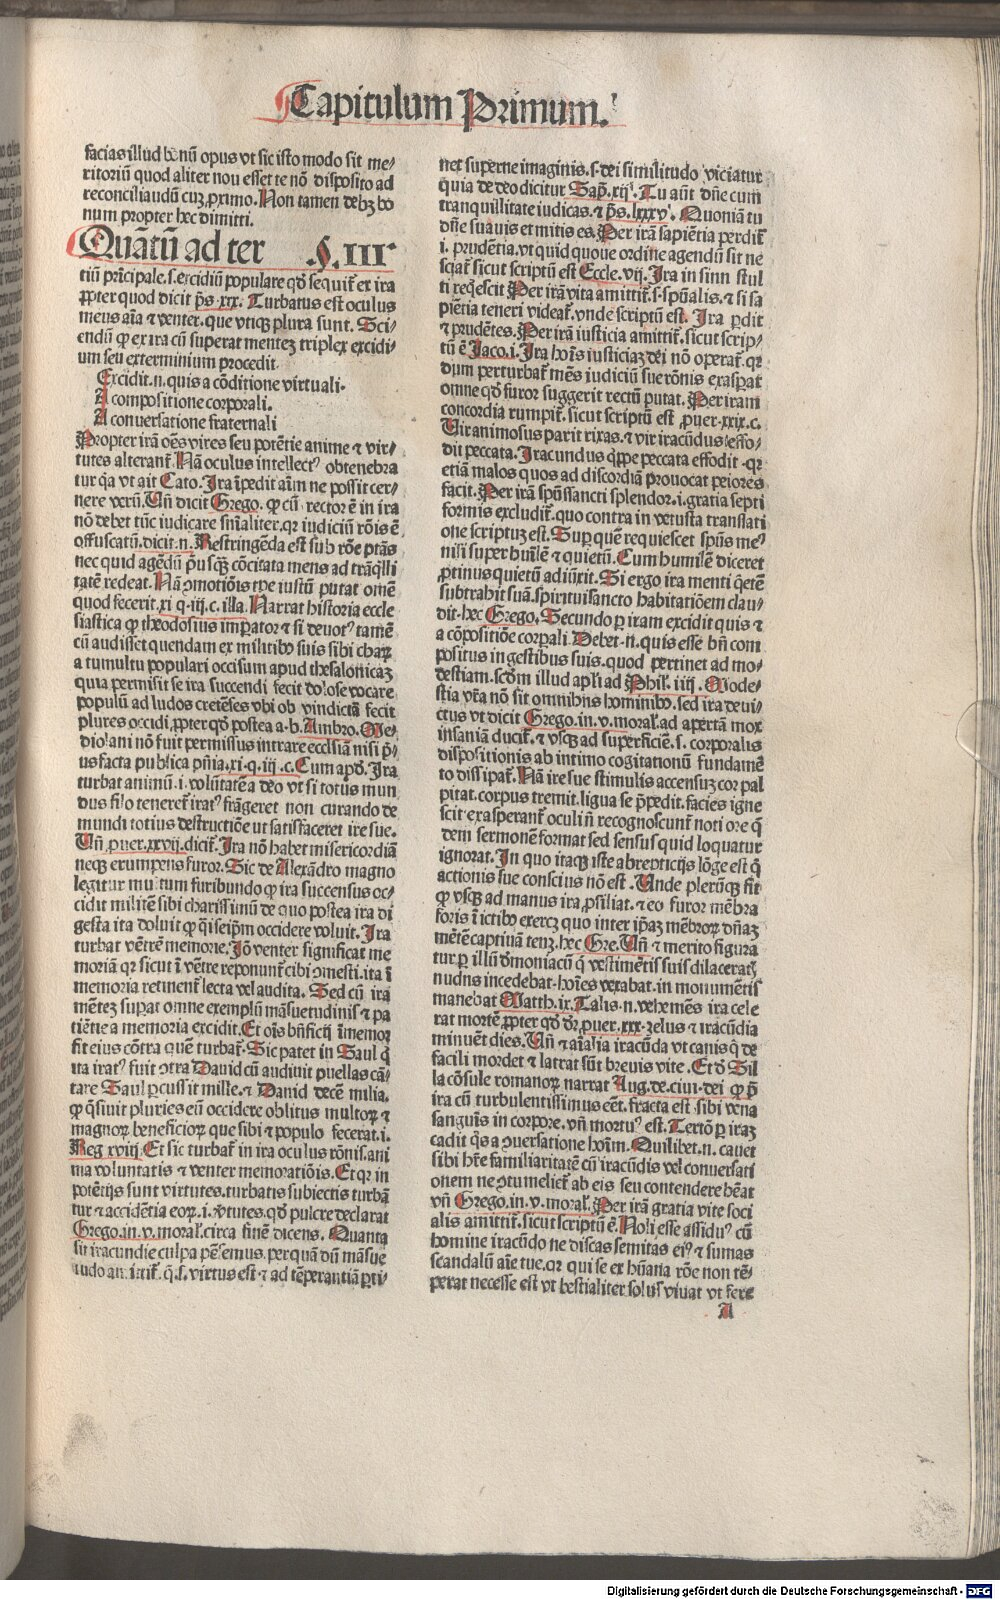 Capitulum Primum.
facias illud bonū opus vt sic isto modo sit me/
ritoriū quod aliter nou esset te nō disposito ad
reconciliaudū cuꝫ ꝓximo. Non tamen debꝫ bo
num propter hec dimitti.
Quātū ad ter §.III
tiū prīcipale.s.excidiū populare qđ sequit̄ ex ira
ꝓpter quod dicit p̄s.xxx. Turbatus est oculus
meus aīa ⁊ venter. que vtiqꝫ plura sunt. Sci/
endū ꝙ ex ira cū superat menteꝫ triplex excidi/
um seu exterminium procedit.
Excidit.n.quis a cōditione virtuali.
A compositione corporali.
A conuersatione fraternali
Propter irā oēs vires seu potētie anime ⁊ vir/
tutes alterant̄. Nā oculus intellectꝰ obtenebra
tur q̄a vt ait Cato. Ira īpedit aīm ne possit cer/
nere verū. Vn̄ dicit Grego. ꝙ cū rector ē in ira
nō debet tūc iudicare sn̄ialiter.qꝛ iudiciū rōis ē
offuscatū.dicit.n. Restringēda est sub rōe ptās
nec quid agēdū p̄usqꝫ cōcitata mens ad trāq̄lli
tatē redeat. Nā ꝯmotiōis tpe iustū putat omē
quod fecerit.xi q.iij.c.illa. Narrat historia eccle
siastica ꝙ theodosius imꝑator ⁊ si deuotꝰ tamē
cū audisset quendam ex militibꝰ suis sibi charꝝ
a tumultu populari occisum apud thesalonicaꝫ
quia permisit se ira succendi fecit dolose vocare
populū ad ludos cretēses vbi ob vindictā fecit
plures occidi.ꝓpter qđ postea a.b. Ambro. Me/
diolani nō fuit permissus intrare ecclsiā nisi p̄/
us facta publica pn̄ia.xi.q.iij.c. Cum apđ. Ira
turbat animū.i.volūtatē a deo vt si totus mun
dus filo teneret̄ iratꝰ frāgeret non curando de
mundi totius destructiōe ut satisfaceret ire sue.
Vn̄ ꝓuer.xxvij.dicit̄. Ira nō habet misericordiā
neqꝫ erumpens furor. Sic de Alexādro magno
legitur multum furibundo ꝙ ira succensus oc/
cidit militē sibi charissimū de quo postea ira di
gesta ita doluit ꝙ q̄i seip̄m occidere voluit. Ira
turbat vētrē memorie. Iō venter significat me
moriā qꝛ sicut ī vētre reponunt̄ cibi ꝯmesti.ita ī
memoria retinent̄ lecta vel audita. Sed cū ira
mētez suꝑat omne exemplū māsuetudinis ⁊ pa
tiētie a memoria excidit. Et oīs bn̄ficij īmemor
fit eius cōtra quē turbat̄. Sic patet in Saul q̄
ita iratꝰ fuit ꝯtra Dauid cū audiuit puellas cā/
tare Saul ꝑcussit mille.⁊ Dauid decē milia.
ꝙ q̄siuit pluries eū occidere oblitus multoꝝ ⁊
magnoꝝ beneficioꝝ que sibi ⁊ populo fecerat.i.
Reg xviij. Et sic turbat̄ in ira oculus rōnis.ani
ma voluntatis ⁊ venter memoratiōis. Et qꝛ in
potētijs sunt virtutes.turbatis subiectis turbā
tur ⁊ accidētia eoꝝ.i.v̄tutes.qđ pulcre declarat
Grego.in.v.moral̄.circa finē dicens. Quanta
sit iracundie culpa pēsemus.per quā dū māsue
tudo amittit̄.q̄.s.virtus est ⁊ ad tēperantiā ꝑti/
net superne imaginis.s.dei similitudo viciatur
quia de deo dicitur Sap̄.xijꝰ. Tu aūt dn̄e cum
tranquilitate iudicas.⁊ p̄s.lxxxvꝰ. Quoniā tu
dn̄e suauis et mitis es. Per irā sapiētia perdit̄
i.prudētia.vt quid quoue ordine agendū sit ne
sciat̄ sicut scriptū est Eccle.vij. Ira in sinn stul
ti reqͥescit Per irā vita amittit̄.s.spūalis.⁊ si sa
piētia teneri videat̄.vnde scriptū est. Ira ꝑdit
⁊ prudētes. Per irā iusticia amittit̄.sicut scrip/
tū ē Iaco.i. Ira hoīs iusticiaꝫ dei nō operat̄.qꝛ
dum perturbat̄ mēs iudiciū sue rōnis exasꝑat
omne qđ furor suggerit rectū putat. Per iram
concordia rumpit̄.sicut scriptū est ꝓuer.xxix.c.
Vir animosus parit rixas.⁊ vir iracūdus effo/
dit peccata. Iracundus q̄ppe peccata effodit.qꝛ
etiā malos quos ad discordiā prouocat peiores
facit. Per irā spūssancti splendor.i.gratia septi
formis excludit̄.quo contra in vetusta translati
one scriptuꝫ est. Suꝑ quē requiescet spūs meꝰ
nisi super hūilē ⁊ quietū. Cum humilē diceret
ꝓtinus quietū adiūxit. Si ergo ira menti q̄etē
subtrahit suā.spirituisancto habitatiōem clau/
dit.hec Grego. Secundo ꝑ iram excidit quis ⁊
a cōpositiōe corꝑali. Debet.n.quis esse bn̄ com
positus in gestibus suis.quod pertinet ad mo/
destiam.scđm illud apl̄i ad Phil̄.iiij. Mode/
stia vr̄a nō sit omnibns hominibꝰ.sed ira deui/
ctus vt dicit Grego.in.v.moral̄.ad apertā mox
insaniā ducit̄.⁊ vsqꝫ ad superficiē.s.corporalis
dispositionis ab intimo cogitationū fundamē
to dissipat̄. Nā ire sue stimulis accensuꝫ cor pal
pitat.corpus tremit.ligua se p̄pedit.facies igne
scit exasperant̄ oculi n̄ recognoscunt̄ noti ore q̄
dem sermonē format sed sensus quid loquatur
ignorat. In quo itaqꝫ iste abrepticijs lōge est q̄
actionis sue conscius nō est. Vnde plerūqꝫ fit
ꝙ vsqꝫ ad manus ira ꝓsiliat.⁊ eo furor mēbra
foris ī ictibꝰ exercꝫ quo inter ip̄aꝫ mēbroꝝ dn̄aꝫ
mētē captiuā tenꝫ.hec Gre. Vn̄ ⁊ merito figura
tur ꝑ illū demoniacū q̄ vestimētis suis dilaceratꝭ
nudns incedebat.hoīes vexabat.in monumētis
manebat Matth.ix. Talis.n.vehemēs ira cele
rat mortē ꝓpter qđ dr̄ ꝓuer.xxx.zelus ⁊ iracūdia
minuēt dies. Vn̄ ⁊ aīalia iracūda vt canis q̄ de
facili mordet ⁊ latrat sūt breuis vite. Et đ Sil
la cōsule romanoꝝ narrat Aug.de.ciui.dei ꝙ p̄
ira cū turbulentissimus eēt.fracta est sibi vena
sanguīs in corpore.vn̄ mortuꝰ est. Tertō ꝑ iraꝫ
cadit q̄s a ꝯuersatione hoīm. Quilibet.n.cauet
sibi hr̄e familiaritatē cū iracūdis vel conuersati
onem ne ꝯtumeliet̄ ab eis seu contendere hēat
vn̄ Grego.in.v.moral̄. Per irā gratia vite soci
alis amittit̄.sicut scriptū ē. Noli esse assiduꝰ cū
homine iracūdo ne discas semitas eiꝰ ⁊ sumas
scandalū aīe tue.qꝛ qui se ex hūana rōe non tē/
perat necesse est vt bestialiter solus viuat vt fere
A
Digitalisierung gefördert durch die Deutsche Forschungsgemeinschaft - DFG